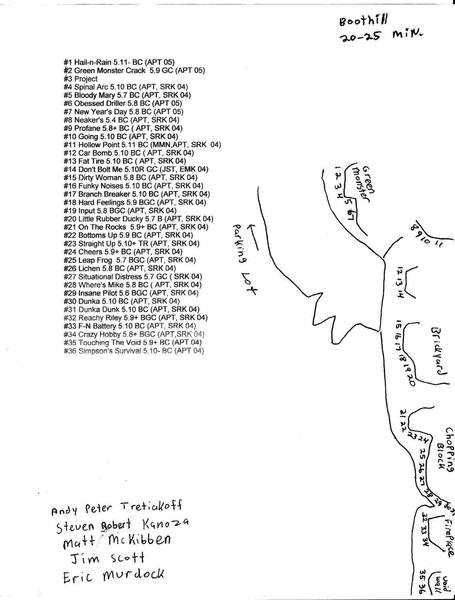 Boothill
20-25 min.
#1 Hail-n-Rain 5.11- BC (APT 05)
#2 Green Monster Crack 5.9 GC (APT 05)
#3 Project
#4 Spinal Arc 5.10 BC (APT, SRK 04)
#5 Bloody Mary 5.7 BC (APT, SRK 04)
#6 Obessed Driller 5.8 BC (APT 05)
#7 New Year's Day 5.8 BC (APT 05)
#8 Neaker's 5.4 BC (APT, SRK 04)
#9 Profane 5.8+ BC ( APT, SRK 04)
#10 Going 5.10 BC (APT, SRK 04)
#11 Hollow Point 5.11 BC (MMN,APT, SRK 04)
#12 Car Bomb 5.10 BC (APT, SRK 04)
#13 Fat Tire 5.10 BC ( APT, SRK 04)
#14 Don't Bolt Me 5.10R GC (JST, EMK 04)
#15 Dirty Woman 5.8 BC (APT, SRK 04)
#16 Funky Noises 5.10 BC (APT, SRK 04)
#17 Branch Breaker 5.10 BC (APT, SRK 04)
#18 Hard Feelings 5.9 BGC (APT, SRK 04)
#19 Input 5.8 BGC (APT, SRK 04)
#20 Little Rubber Ducky 5.7 B (APT, SRK 04)
#21 On The Rocks 5.9+ BC (APT, SRK 04)
#22 Bottoms Up 5.9 BC (APT, SRK 04)
#23 Straight Up 5.10+ TR (APT, SRK 04)
#24 Cheers 5.9+ BC (APT, SRK 04)
#25 Leap Frog 5.7 BGC (APT, SRK 04)
#26 Lichen 5.8 BC (APT, SRK 04)
#27 Situational Distress 5.7 GC ( SRK 04)
#28 Where's Mike 5.8 BC ( APT, SRK 04)
#29 Insane Pilot 5.6 BGC (APT, SRK 04)
#30 Dunka 5.10 BC (APT, SRK 04)
#31 Dunka Dunk 5.10 BC (APT, SRK 04)
#32 Reachy Riley 5.9+ BGC (APT, SRK 04)
#33 F-N Battery 5.10 BC (APT, SRK 04)
#34 Crazy Hobby 5.8+ BGC (APT,SRK 04)
#35 Touching The Void 5.9+ BC (APT 04)
#36 Simpson's Survival 5.10- BC (APT 04)
Green
Monster
1
2
3
4
5
6
7
Parking Lot
8 9 10 11
12
13
14
15
16
17
18
19
20
Brickyard
21
22
23 24
25
26
27
28
29
Chopping
Block
Fireplace
33
34
35
36
Void
Wall
Andy Peter Tretiakoff
Steven Robert Kanoza
Matt McKibben
Jim Scott
Eric Murdock